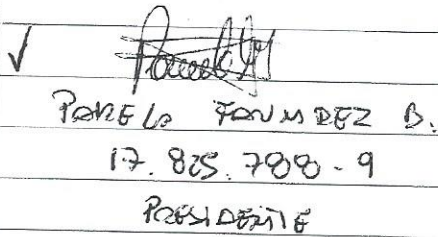 ✓
PAMELA FAUNDEZ B.
17.825.788-9
PRESIDENTE